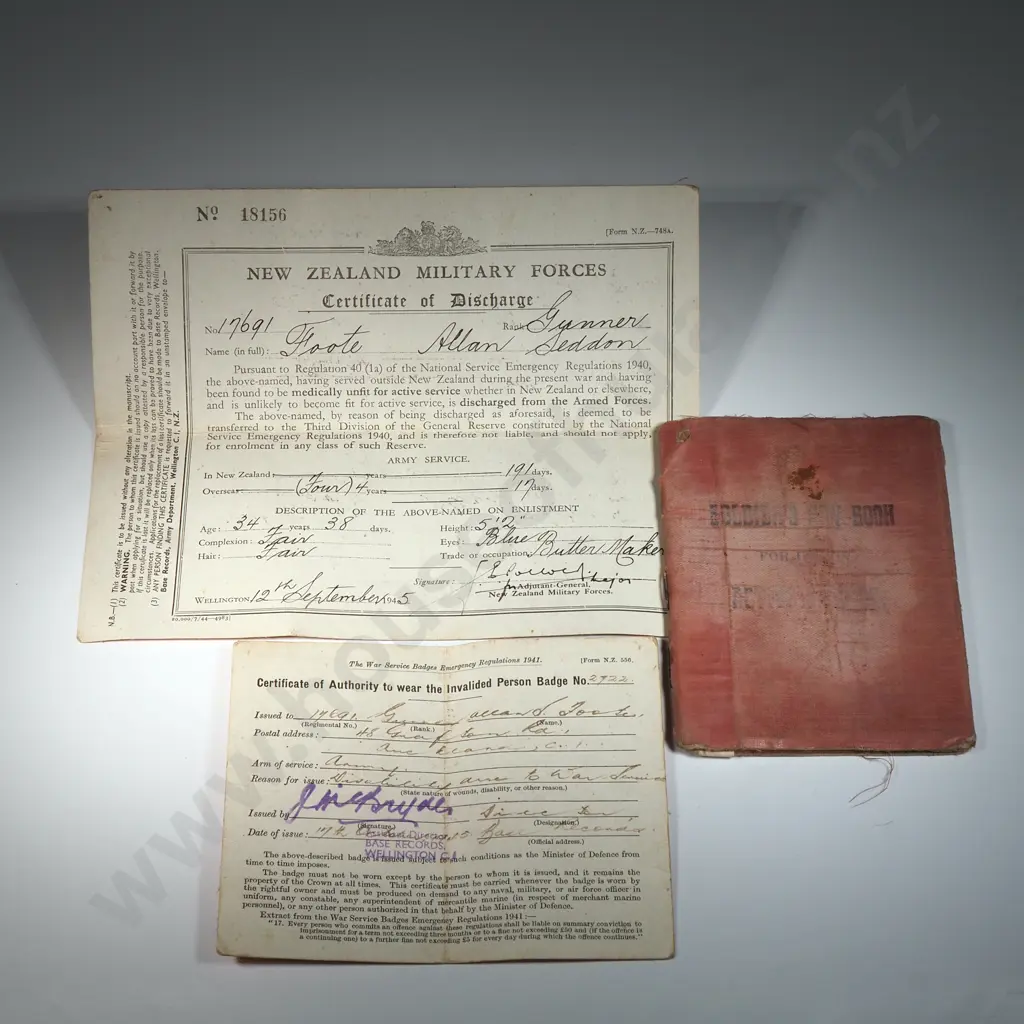 Nº 18156
[Form N.Z.—748A.
NEW ZEALAND MILITARY FORCES
Certificate of Discharge
No. 17691 Rank Gunner
Name (in full): Foote Allan Seddon
Pursuant to Regulation 40 (1a) of the National Service Emergency Regulations 1940,
the above-named, having served outside New Zealand during the present war and having
been found to be medically unfit for active service whether in New Zealand or elsewhere,
and is unlikely to become fit for active service, is discharged from the Armed Forces.
The above-named, by reason of being discharged as aforesaid, is deemed to be
transferred to the Third Division of the General Reserve constituted by the National
Service Emergency Regulations 1940, and is therefore not liable, and should not apply,
for enrolment in any class of such Reserve.
ARMY SERVICE.
In New Zealand years 191 days.
Overseas (Four) 4 years 17 days.
DESCRIPTION OF THE ABOVE-NAMED ON ENLISTMENT
Age: 34 years 38 days. Height: 5'2"
Complexion: Fair Eyes: Blue
Hair: Fair Trade or occupation: Butter Maker
Signature: Major
Adjutant-General,
New Zealand Military Forces.
WELLINGTON, 12th September, 1945
N.B.—(1) This certificate is to be issued without any alteration in the manuscript.
(2) WARNING. The person to whom this certificate is issued should on no account part with it or forward it by
post when applying for a situation, but should use a copy attested by a responsible person for the purpose.
(3)
ANY PERSON FINDING THIS CERTIFICATE is requested to forward it in an unstamped envelope to—
Base Records, Army Department, Wellington C.1, N.Z.
The War Service Badges Emergency Regulations 1941. [Form N.Z. 556.
Certificate of Authority to wear the Invalided Person Badge No. 2922
Issued to 17691 Allan S. Foote
(Regimental No.) (Rank.) (Name.)
Postal address: 48
C.1.
Arm of service: Army
Reason for issue: Disability due to War Service
(State nature of wounds, disability, or other reason.)
Issued by J McBryde
(Signature.) (Designation.)
Date of issue: 17th Base Records
(Official address.)
BASE RECORDS,
WELLINGTON C.1.
The above-described badge is issued subject to such conditions as the Minister of Defence from
time to time imposes.
The badge must not be worn except by the person to whom it is issued, and it remains the
property of the Crown at all times. This certificate must be carried whenever the badge is worn by
the rightful owner and must be produced on demand to any naval, military, or air force officer in
uniform, any constable, any superintendent of mercantile marine (in respect of merchant marine
personnel), or any other person authorized in that behalf by the Minister of Defence.
Extract from the War Service Badges Emergency Regulations 1941:—
"17. Every person who commits an offence against these regulations shall be liable on summary conviction to
imprisonment for a term not exceeding three months or to a fine not exceeding £50 and (if the offence is
a continuing one) to a further fine not exceeding £5 for every day during which the offence continues."